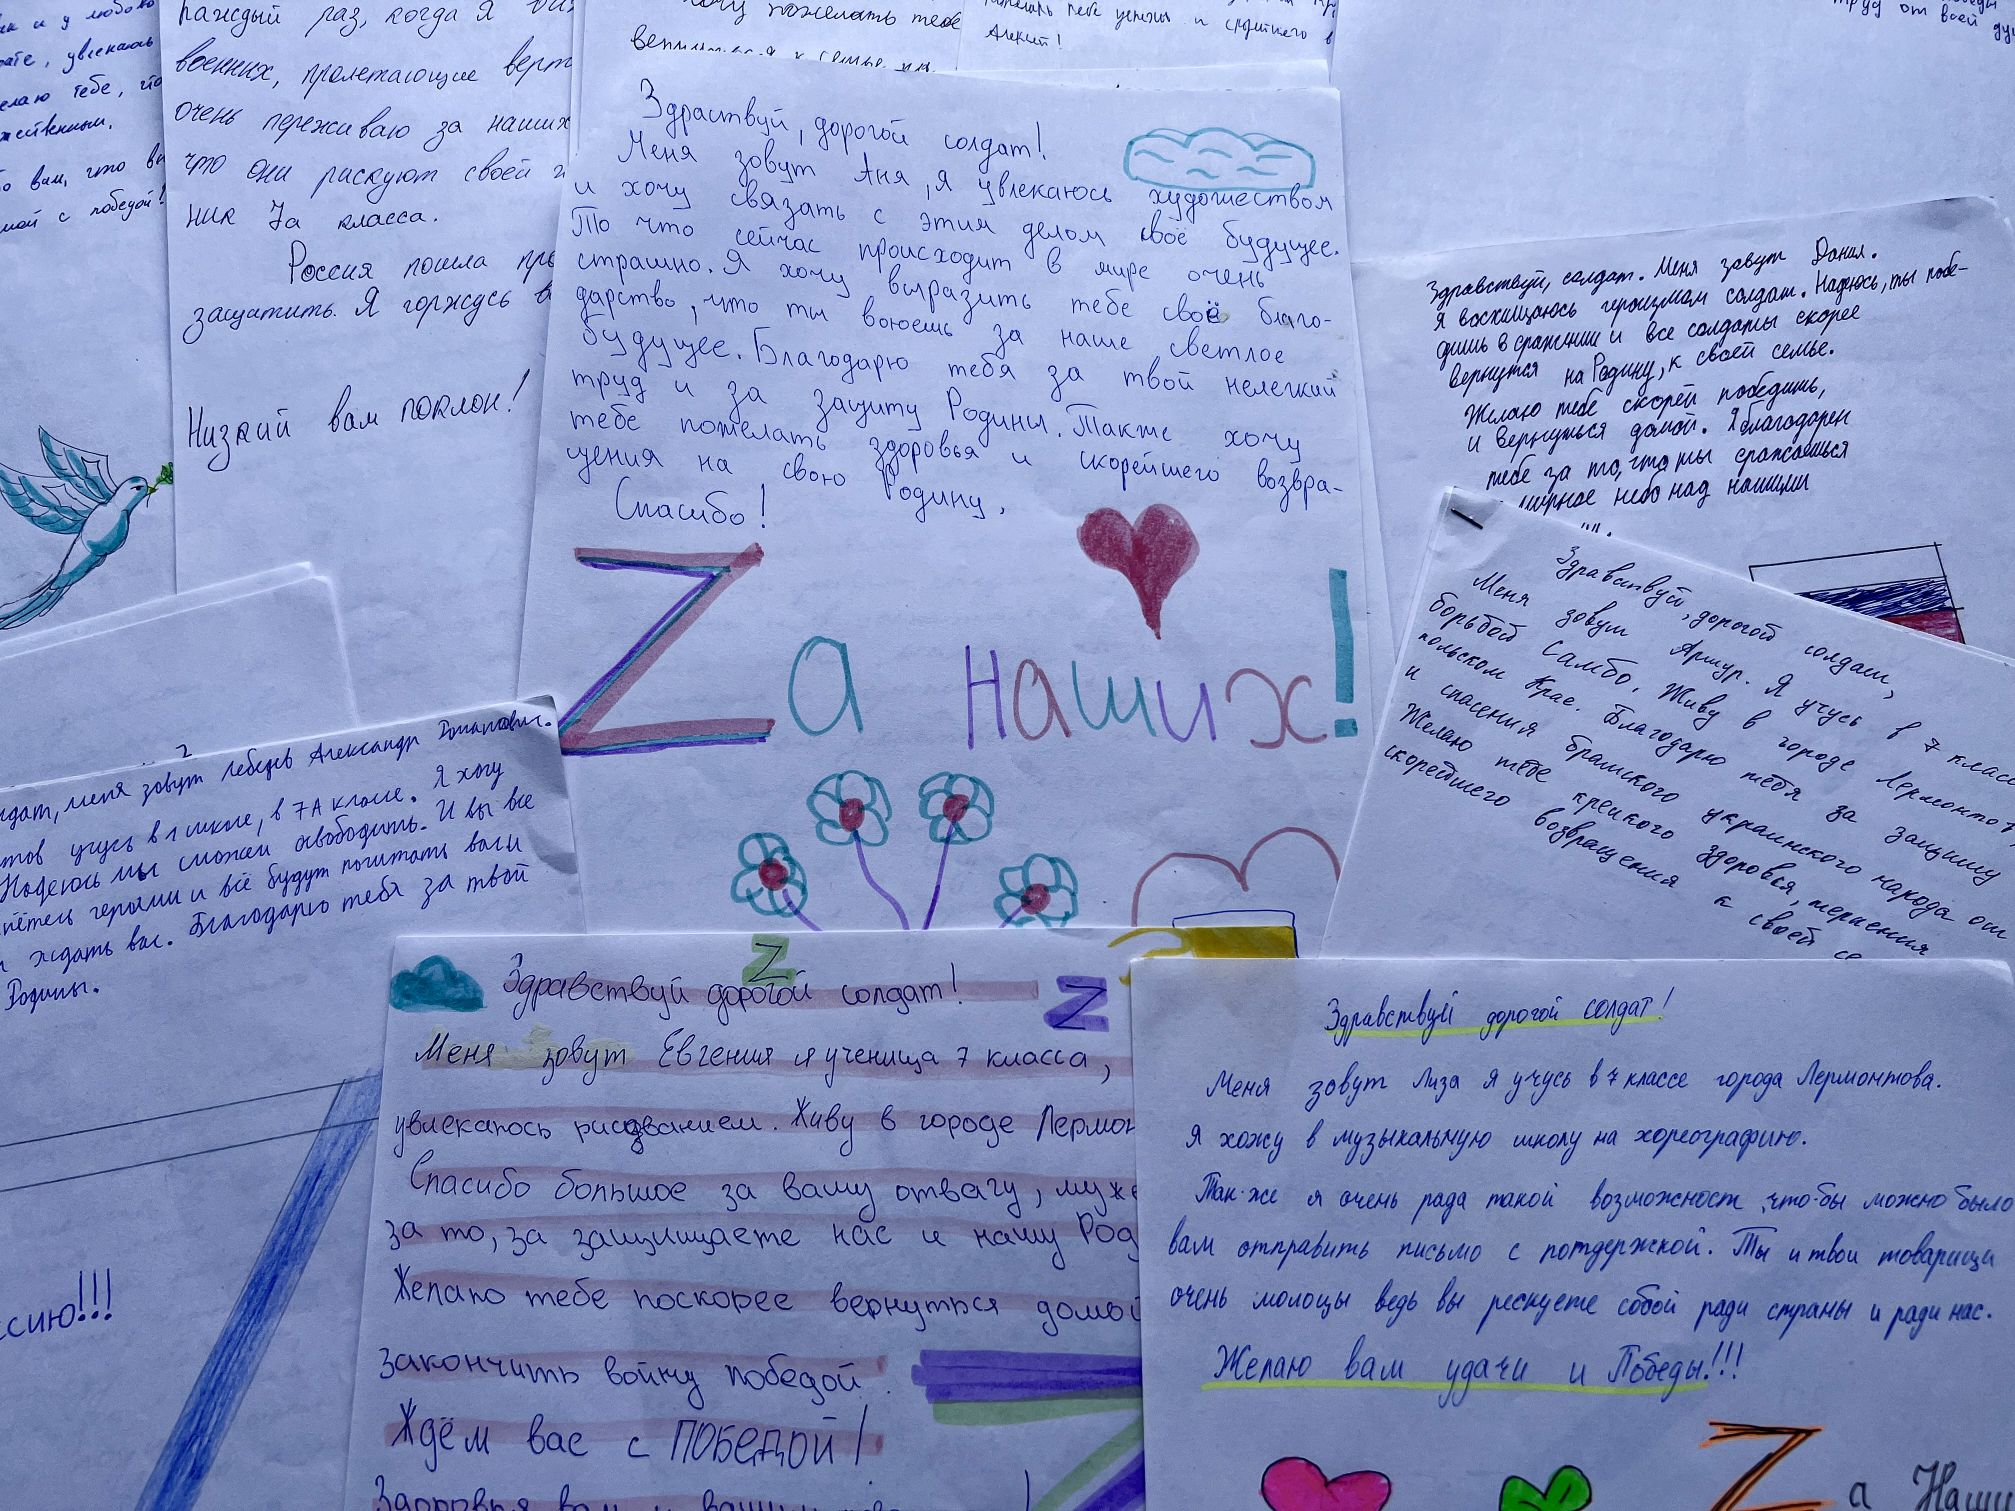 каждый раз, когда я
военных, пролетающие
очень переживаю за наших
что они рискуют своей
ник 7а класса.
Россия пошла
защитить. Я горжусь
Низкий вам поклон!
увлекаюсь
тебе, что
вам, что вы
с победой!
хочу пожелать тебе
Алексей!
труд от всей
Здраствуй, дорогой солдат!
Меня зовут Аня, я увлекаюсь художеством
и хочу связать с этим делом своё будущее.
То что сейчас происходит в мире очень
страшно. Я хочу выразить тебе своё благо-
дарство, что ты воюешь за наше светлое
будущее. Благодарю тебя за твой нелегкий
труд и за защиту Родины. Также хочу
тебе пожелать здоровья и скорейшего возвра-
щения на свою Родину.
Спасибо!
Zа наших!
Здравствуй, солдат. Меня зовут Данил.
Я восхищаюсь героизмом солдат. Надеюсь, ты побе-
дишь в сражении и все солдаты скорее
вернутся на Родину, к своей семье.
Желаю тебе скорей победить,
и вернуться домой. Я благодарен
тебе за то, что ты сражаешься
мирное небо над нашими
Здравствуй, дорогой солдат,
Меня зовут Артур. Я учусь в 7 класс
борьбой Самбо. Живу в городе Лермонтов
польском Крае. Благодарю тебя за защиту
и спасения братского украинского народа от
Желаю тебе крепкого здоровья, терпения
скорейшего возвращения к своей се
лдат, меня зовут Лебедев Александр Романович.
тов учусь в 1 школе, в 7А классе. Я хочу
Надеюсь мы сможем освободить. И вы все
нётесь героями и всё будут почитать вас и
ждать вас. Благодарю тебя за твой
Родины.
ссию!!!
Z
Z
Здравствуй дорогой солдат!
Меня зовут Евгения я ученица 7 класса,
увлекаюсь рисованием. Живу в городе Лермон
Спасибо большое за вашу отвагу, муже
за то, за защищаете нас и нашу Род
Желаю тебе поскорее вернуться домой
закончить войну победой.
Ждём вас с ПОБЕДОЙ!
Здоровья вам и вашим
Здравствуй дорогой солдат!
Меня зовут Лиза я учусь в 7 классе города Лермонтова.
Я хожу в музыкальную школу на хореографию.
Так-же я очень рада такой возможност, что-бы можно было
вам отправить письмо с потдержкой. Ты и твои товарищи
очень молоцы ведь вы рескуете собой ради страны и ради нас.
Желаю вам удачи и Победы!!!
Zа Наши